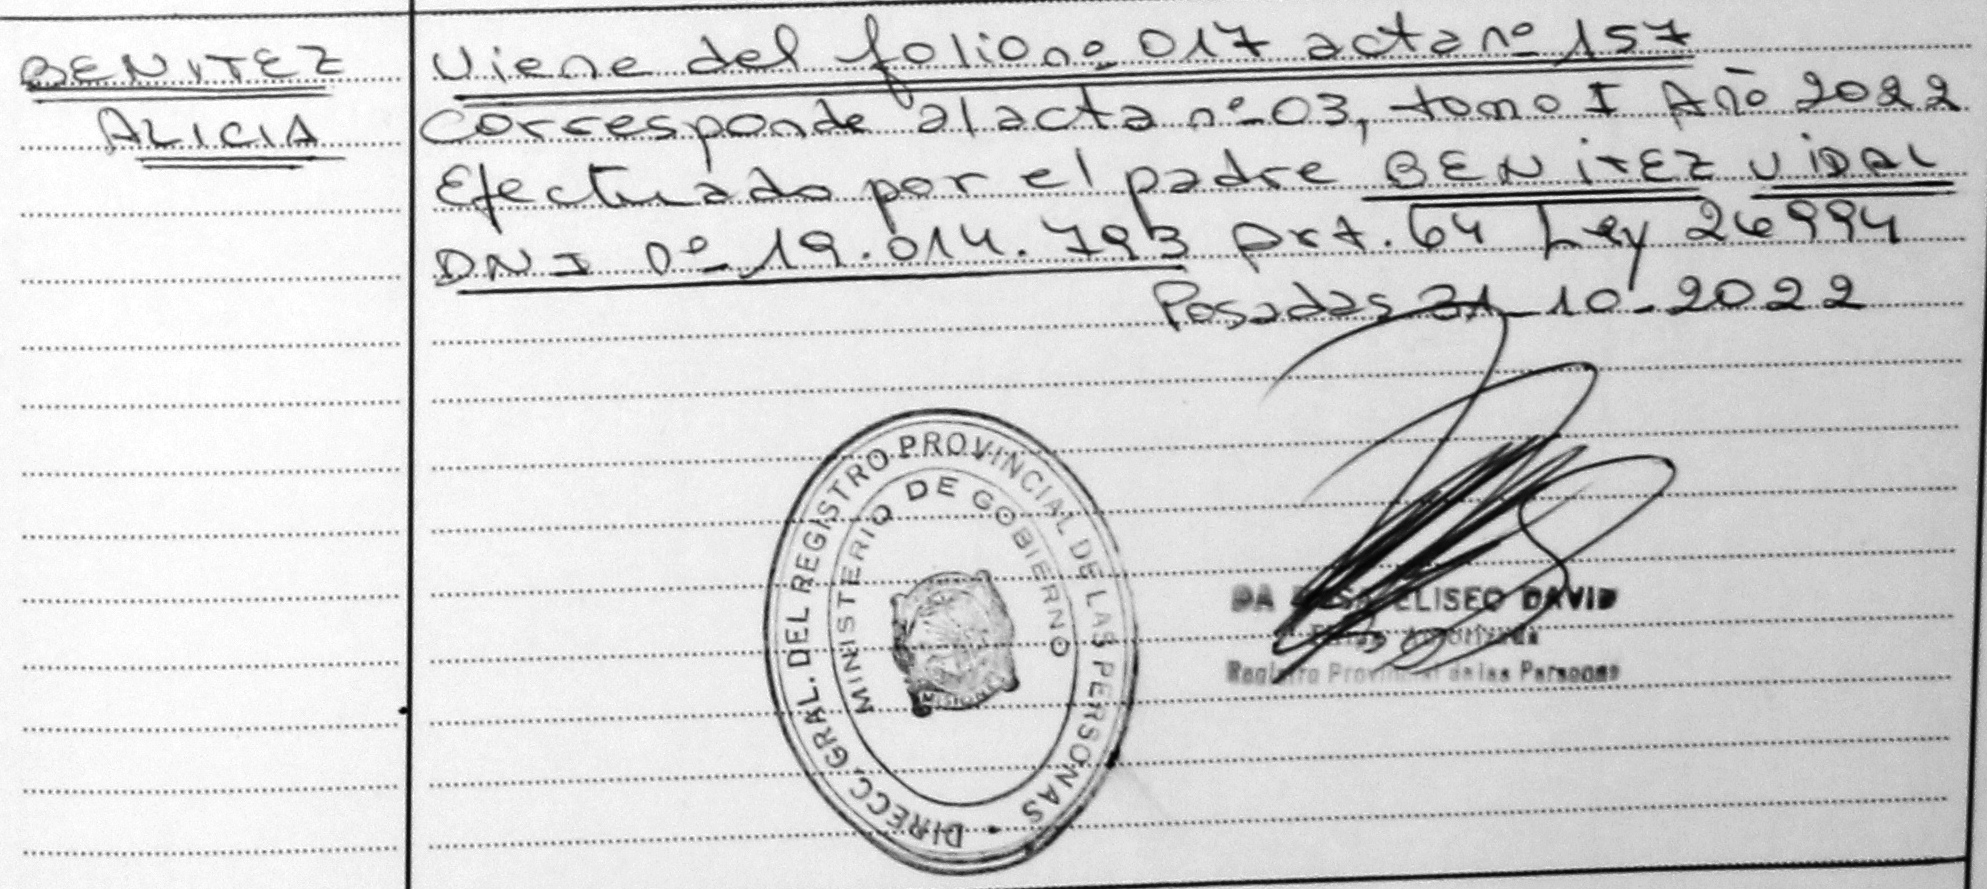 BENITEZ
ALICIA
Viene del folio nº 017 acta nº 157
Corresponde al acta nº 03, tomo I Año 2022
Efectuado por el padre BENITEZ VIDAL
DNI nº 19.014.793 Art. 64 Ley 26994
Posadas 31-10-2022
DIRECC. GRAL. DEL REGISTRO PROVINCIAL DE LAS PERSONAS
MINISTERIO DE GOBIERNO
MISIONES
DA ELISEO DAVID
Autorizada
Registro Provincial de las Personas